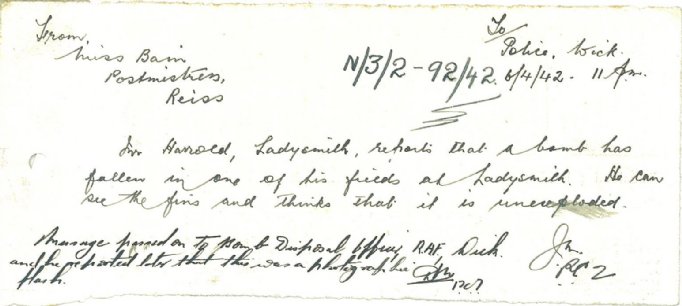 From,
Miss Bain
Postmistress,
Reiss
To/
Police, Wick.
N/3/2-92/42. 6/4/42. 11 Am.
Mr Harrold, Ladysmith, reports that a bomb has
fallen in one of his fields at Ladysmith. He can
see the fins and thinks that it is unexploded.
Message passed on to Bomb Disposal Officer RAF, Wick.
and he reported later that this was a photographic
flash.
PC 2